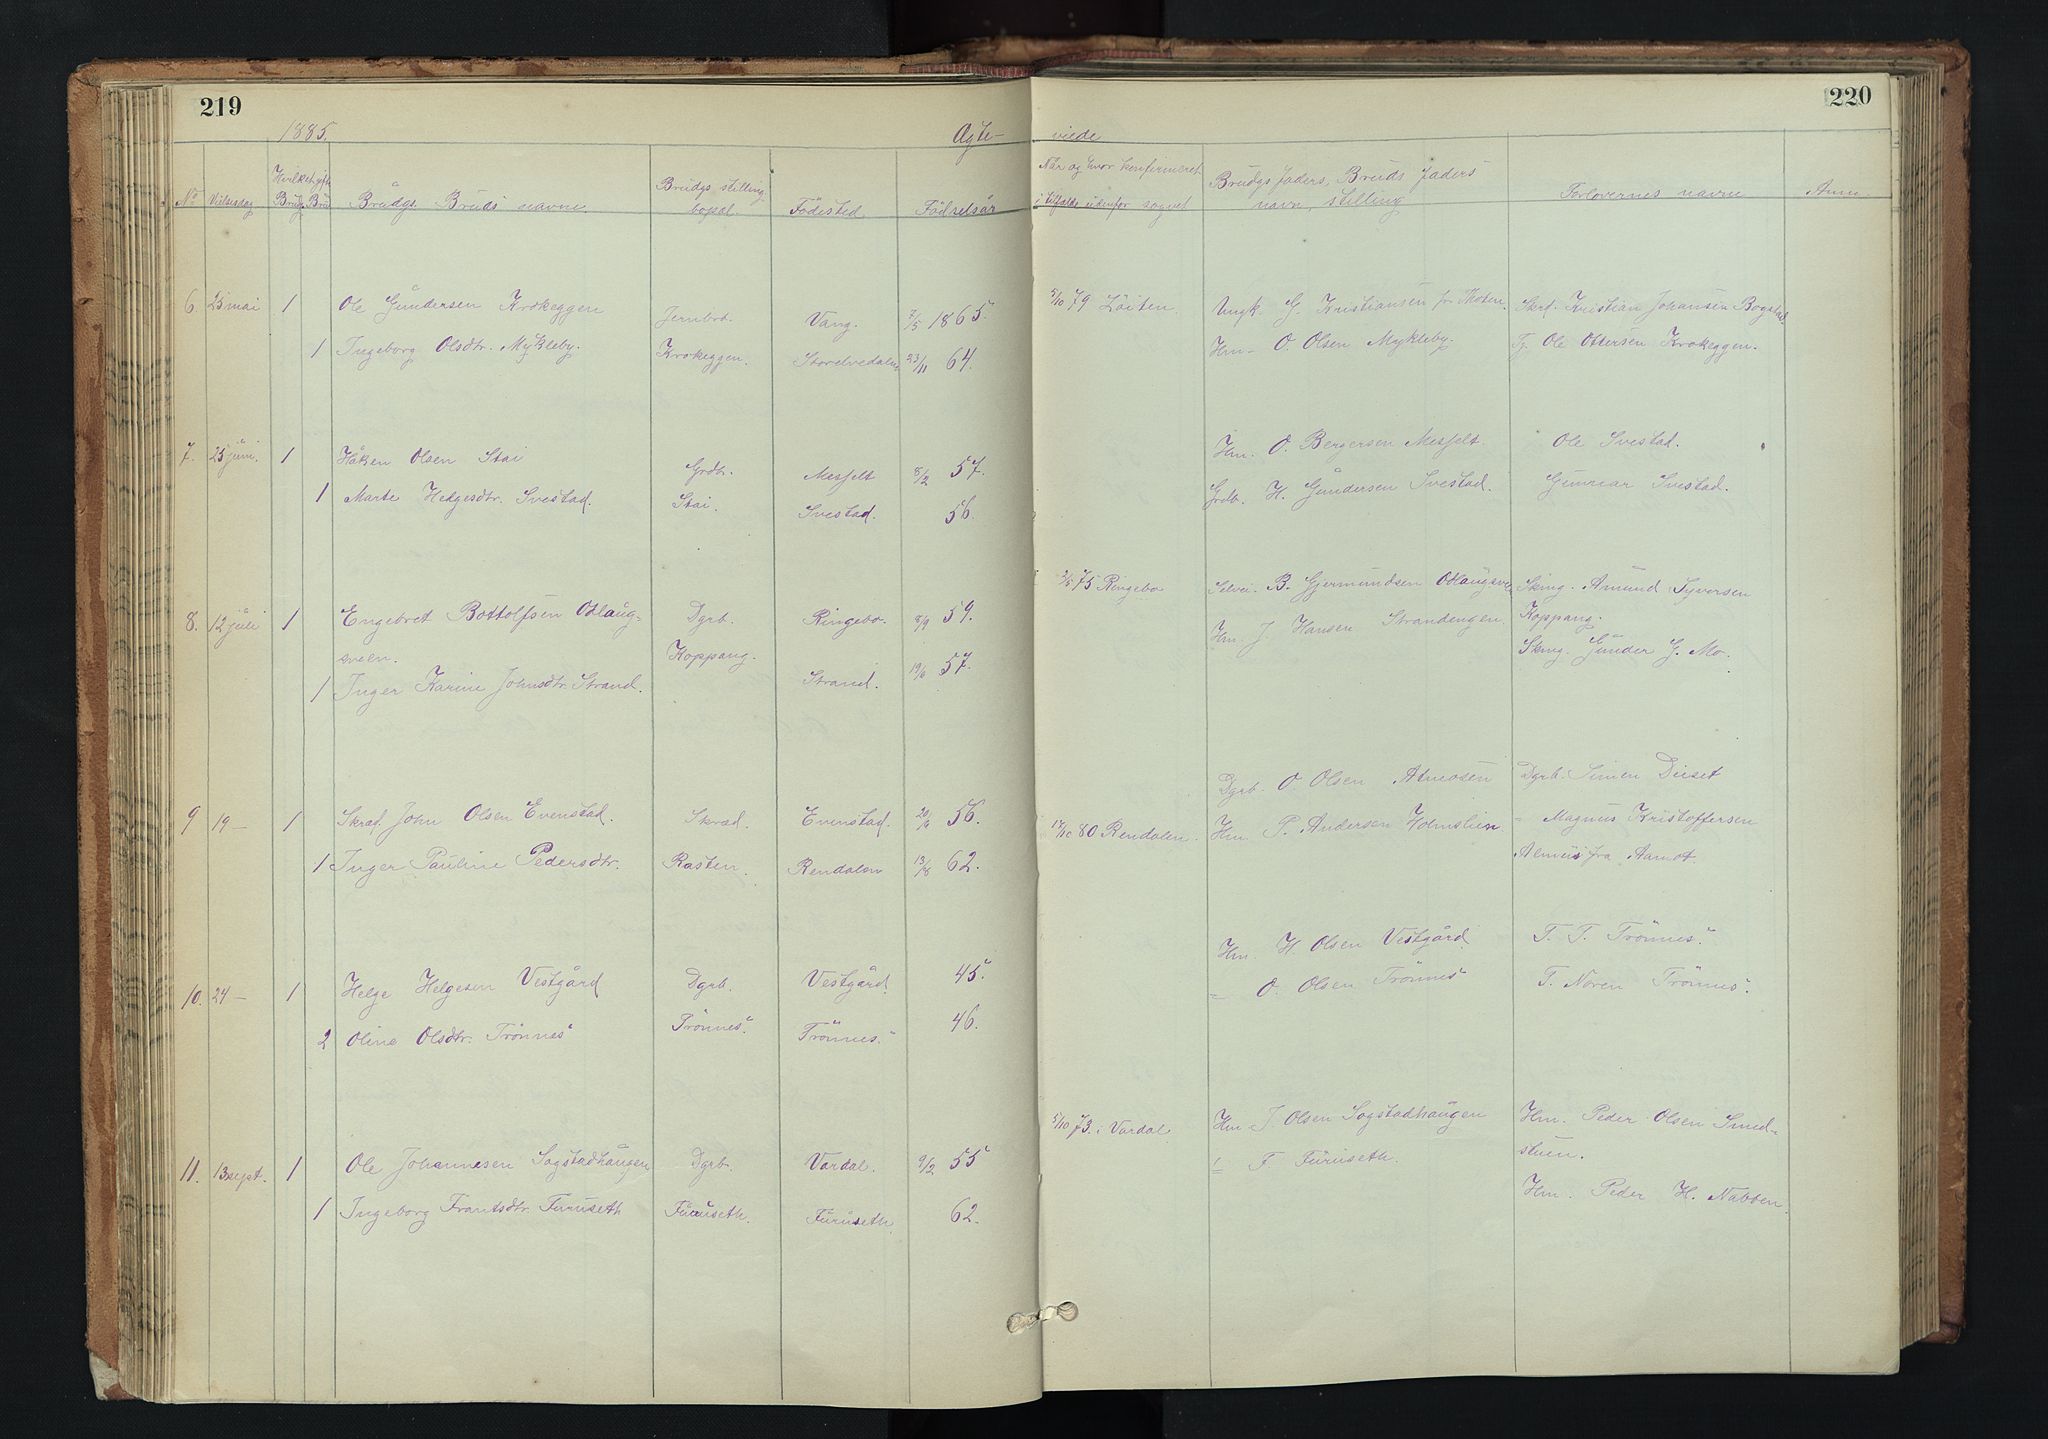 219
220
1885.
Ægte-
viede
No Vielsesdag Brudg. Brud Brudgs Bruds navne. Brudgs stilling, bopæl. Födested. Födselsår
Når og hvor konfirmeret i tilfælde udenfor sognet
Brudgs faders, Bruds faders navn, stilling
Forlovernes navne
6 25 mai 1 Ole Gundersen Krokeggen Jernbrd. Vang. 7/5 1865. 5/10 79 Löiten Ungk. G. Kristiansen fr. Thoten. Skrd. Kristian Johansen Bogstad
1 Ingeborg Olsdtr. Mykleby. Krokeggen. Storelvedalen 23/11 64. Hm- O. Olsen Mykleby. Tj. Ole Ottersen Krokeggen.
7. 25 juni. 1 Håken Olsen Stai Grdbr. Mesfelt 8/2 57. Hm. O. Bergersen Mesfelt Ole Svestad.
1 Marte Helgesdtr. Svestad. Stai. Svestad. 56. Grdb. H. Gundersen Svestad. Gunnar Svestad.
8. 12 juli 1 Engebret Bottolfsen Odlaug-
sveen. Dgrb. Ringebo. 8/9 59. 75 Ringebo Selvei. B. Gjermundsen Odlaugsve Sking. Amund Syversen
Koppang.
1 Inger Karine Johnsdtr. Strand. Koppang. Strand. 19/6 57. Hm. J. Hansen Strandengen. Sking. Gunder G. Mo.
9 19- 1 Skræd. John Olsen Evenstad. Skræd. Evenstad. 56. Dgrb. O Olsen Atneosen Dgrb. Simen Dieset
1 Inger Pauline Pedersdtr. Rasten. Rendalen 13/8 62. 80 Rendalen. Hm P. Andersen Holmslien = Magnus Kristoffersen
fra Aamot.
10. 24- 1 Helge Helgesen Vestgård Dgrb. Vestgård. 45. Hm. H. Olsen Vestgård. T. T. Trönnes.
2 Oline Olsdtr. Trönnes Trönnes. Trönnes. 46. = O. Olsen Trönnes T. Noren Trönnes.
11. 13 sept. 1 Ole Johannesen Sogstadhaugen Dgrb. Vardal. 9/2 55 5/10 73. i Vardal Hm J. Olsen Sogstadhaugen Hm. Peder Olsen Smed-
stuen.
1 Ingeborg Frantsdtr. Furuseth Furuseth. Furuseth 62. = F Furuseth. Hm. Peder H. Nabben.